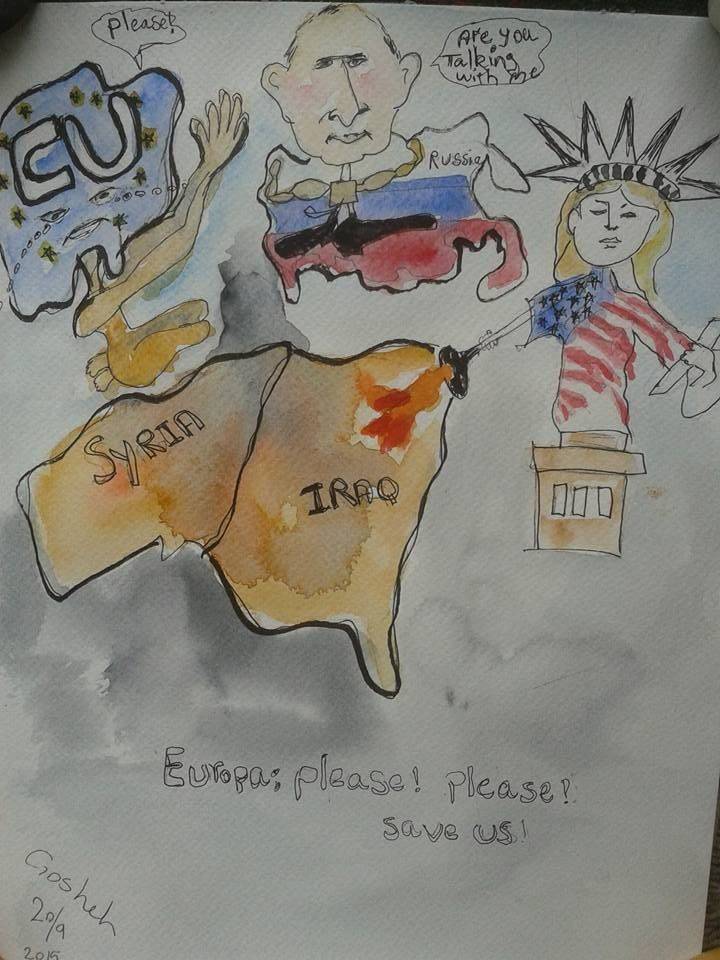 please!
EU
Are you
Talking
with me
RUSSIA
SYRIA
IRAQ
Europa; please! please!
save us!
Gosheh
20/9
2015